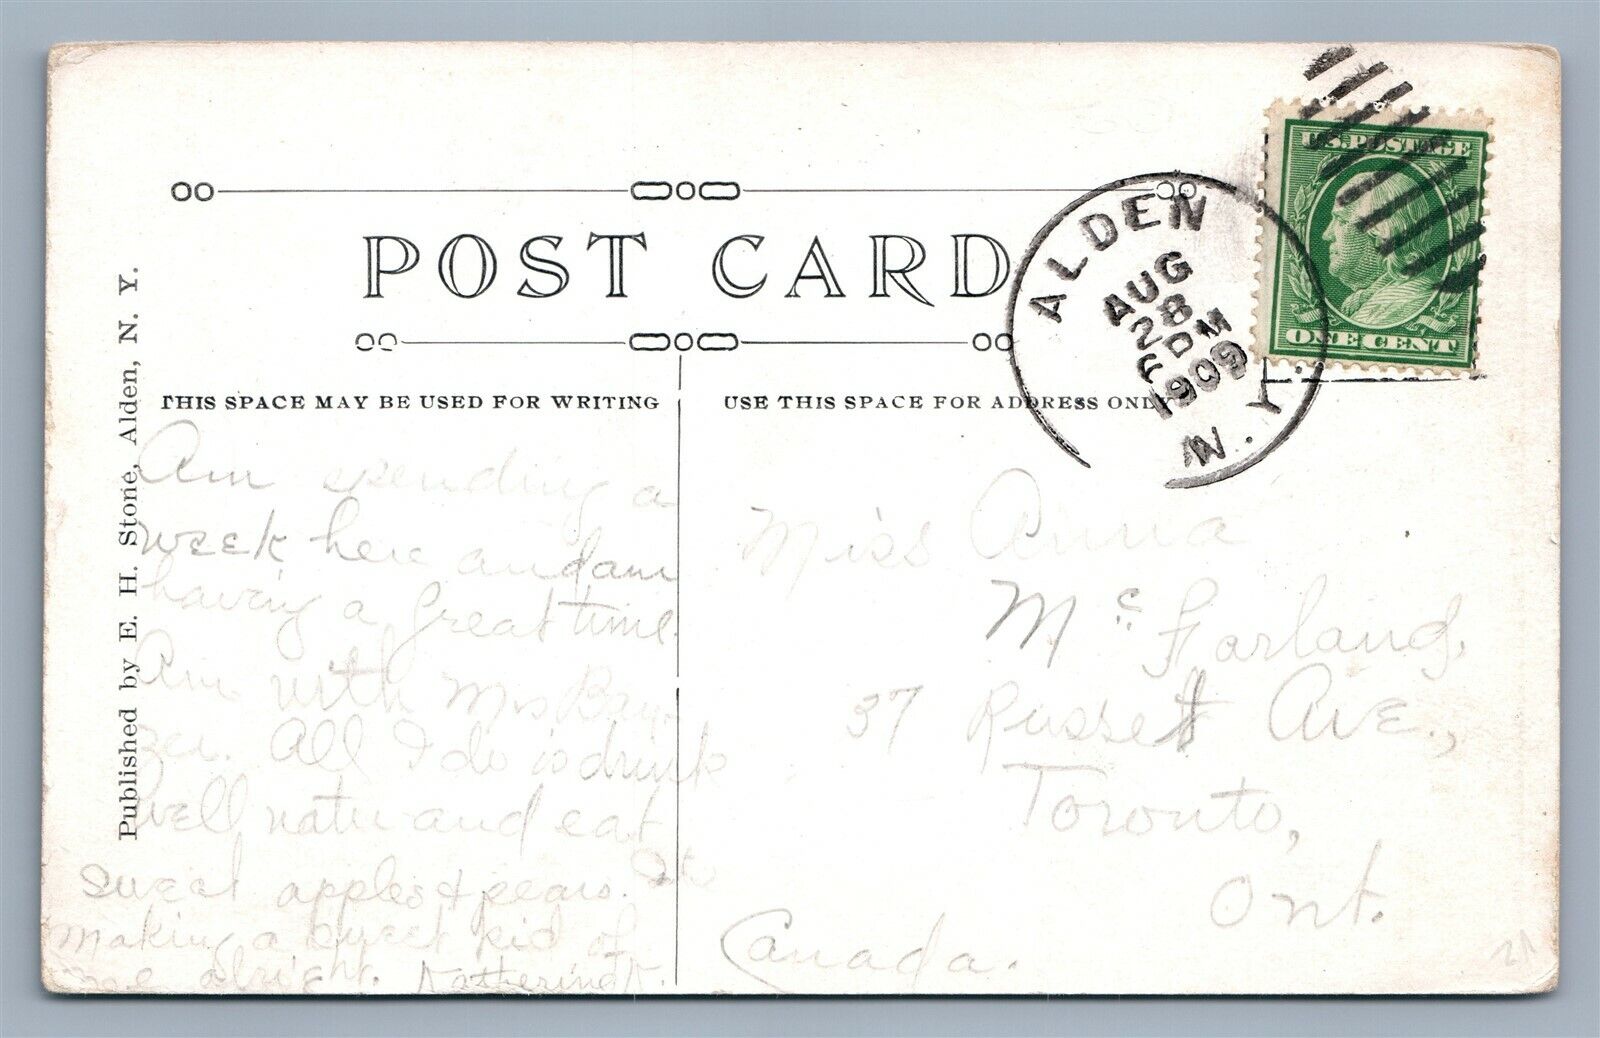 POST CARD
Published by E. H. Stone, Alden, N. Y.
THIS SPACE MAY BE USED FOR WRITING
USE THIS SPACE FOR ADDRESS ONLY
ALDEN
AUG
28
6 PM
1909
N.Y.
U.S. POSTAGE
ONE CENT
Am spending a
week here and am
having a great time.
Am with Mrs Bay-
zer. All I do is drink
well water and eat
sweet apples & pears. Its
making a sweet kid of
me alright. Katherine N.
Miss Anna
McFarland,
37 Russett Ave.,
Toronto,
Ont.
Canada.